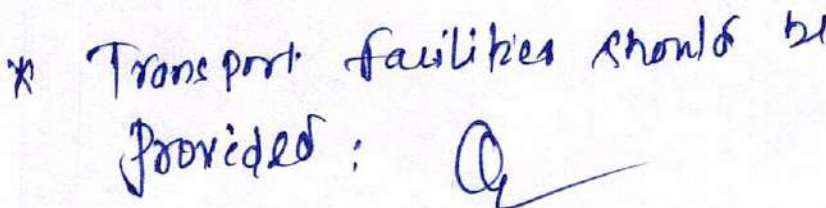 * Transport facilities should be
provided :